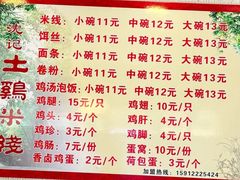 沈记
土鸡米线
米线：小碗11元 中碗12元 大碗13元
饵丝：小碗11元 中碗12元 大碗13元
面条：小碗11元 中碗12元 大碗13元
卷粉：小碗11元 中碗12元 大碗13元
鸡汤泡饭：小碗11元 中碗12元 大碗13元
鸡腿：15元/只 鸡翅：10元/只
鸡头：4元/个 鸡肝：4元/个
鸡珍：3元/个 鸡脚：4元/只
鸡肠：7元/份 蛋窝：10元/份
香卤鸡蛋：2元/个 荷包蛋：3元/个
加盟热线：15912225424